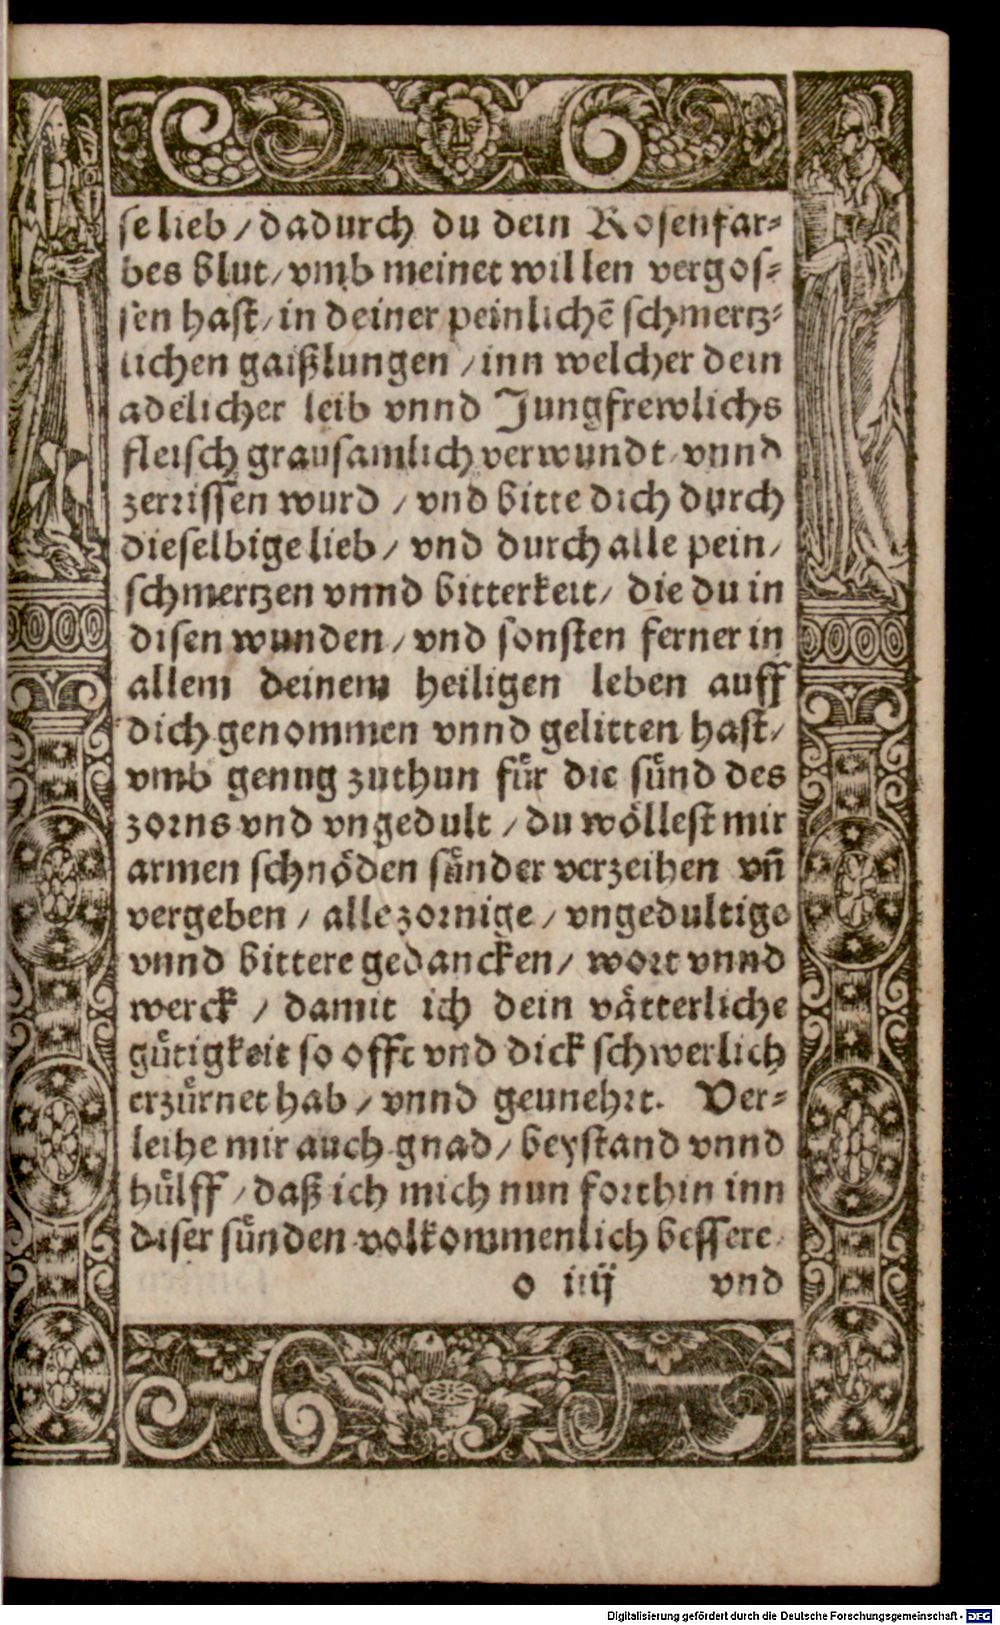 se lieb / dadurch du dein Rosenfar⸗
bes blut / vmb meinet willen vergos⸗
sen hast / in deiner peinlichē schmertz⸗
lichen gaißlungen / inn welcher dein
adelicher leib vnnd Jungfrewlichs
fleisch grausamlich verwundt / vnnd
zerrissen wurd / vnd bitte dich durch
dieselbige lieb / vnd durch alle pein /
schmertzen vnnd bitterkeit / die du in
disen wunden / vnd sonsten ferner in
allem deinem heiligen leben auff
dich genommen vnnd gelitten hast /
vmb genug zuthun fuͤr die suͤnd des
zorns vnd vngedult / du woͤllest mir
armen schnoͤden suͤnder verzeihen vñ
vergeben / alle zornige / vngedultige
vnnd bittere gedancken / wort vnnd
werck / damit ich dein vaͤtterliche
guͤtigkeit so offt vnd dick schwerlich
erzuͤrnet hab / vnnd geunehrt. Ver⸗
leihe mir auch gnad / beystand vnnd
huͤlff / daß ich mich nun forthin inn
diser suͤnden volkommenlich bessere /
o iiij vnd
Digitalisierung gefördert durch die Deutsche Forschungsgemeinschaft - DFG